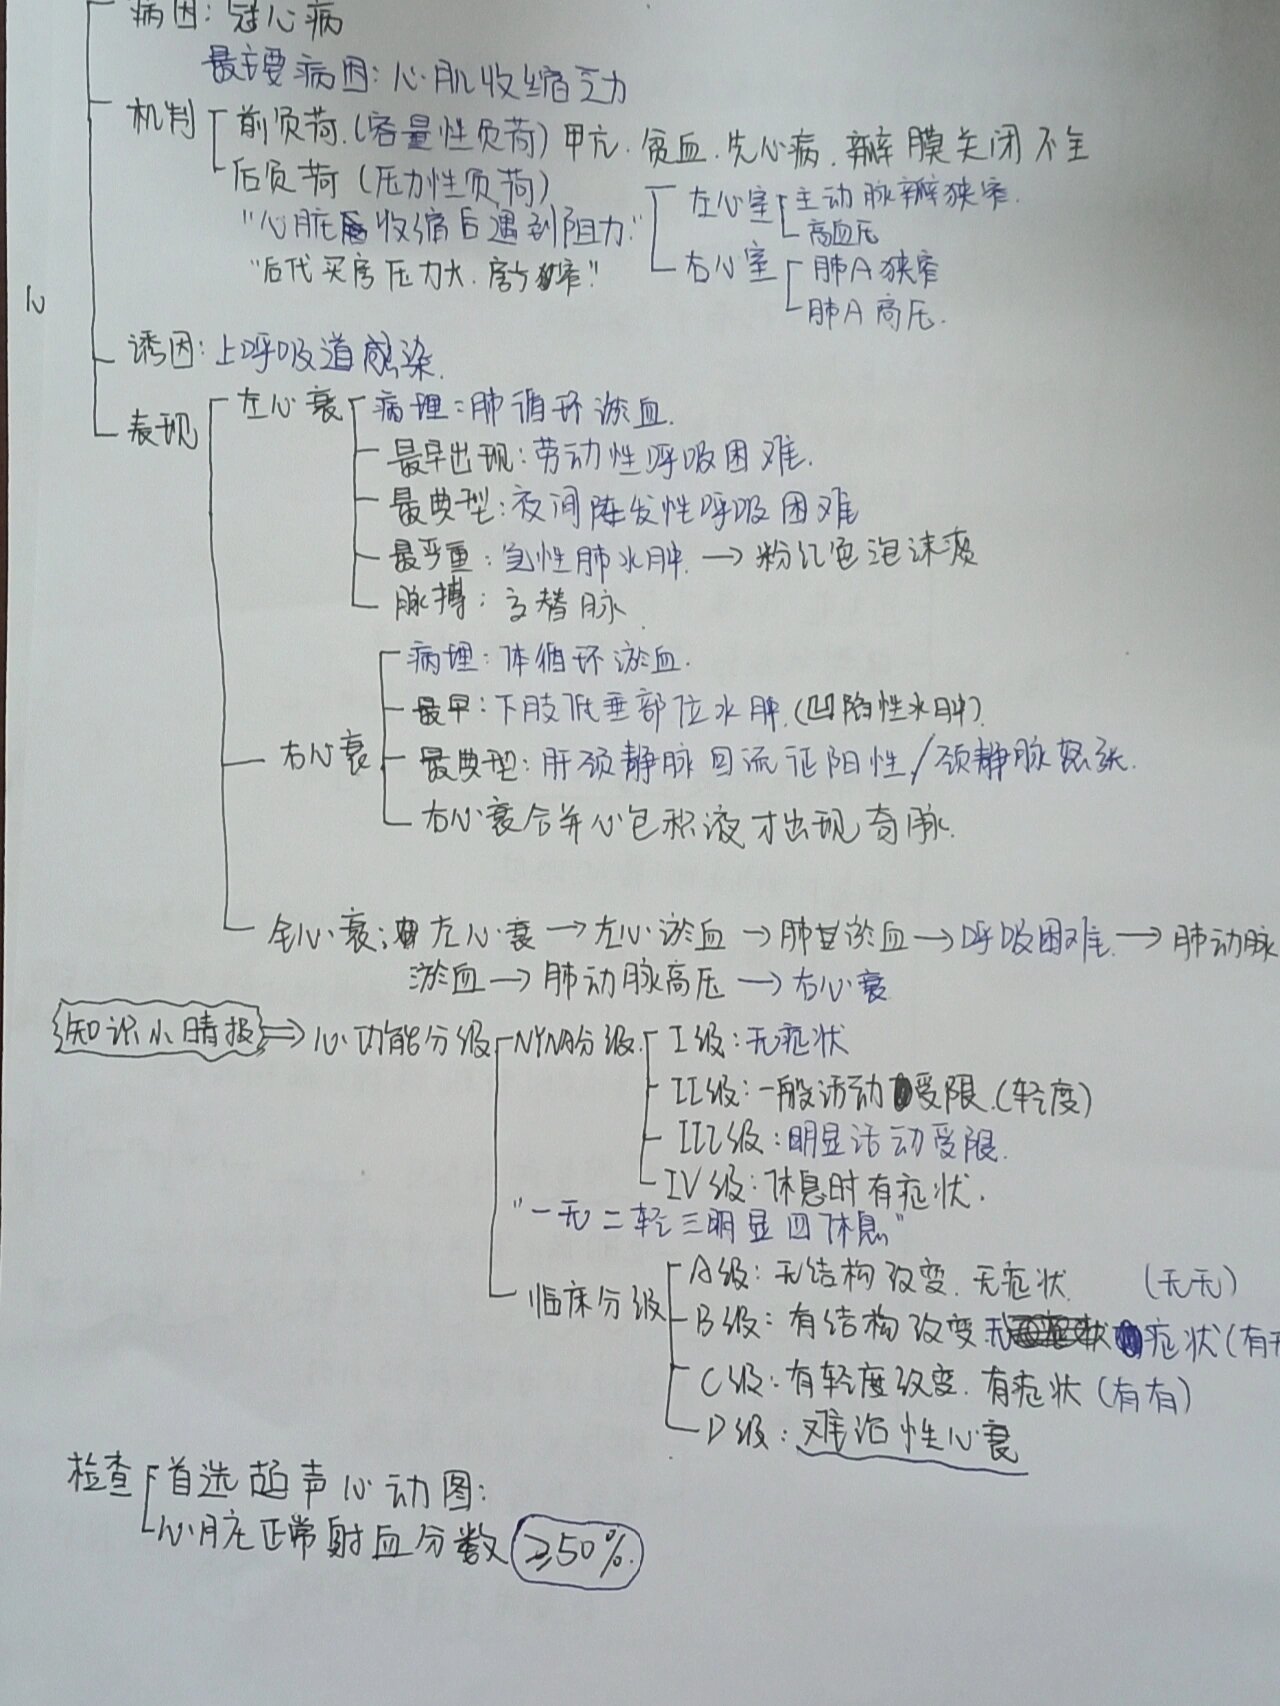 病因：冠心病
最主要病因：心肌收缩乏力
机制 前负荷.(容量性负荷) 甲亢.贫血.先心病.瓣膜关闭不全
后负荷 (压力性负荷)
左心室 主动脉瓣狭窄.
"心脏收缩后遇到阻力."
高血压
右心室 肺A狭窄
"后代买房压力大.房窄"
肺A高压.
诱因：上呼吸道感染.
表现 左心衰 病理：肺循环淤血.
最早出现：劳动性呼吸困难.
最典型：夜间阵发性呼吸困难
最严重：急性肺水肿.→粉红色泡沫痰
脉搏：交替脉.
病理：体循环淤血.
最早：下肢低垂部位水肿.(凹陷性水肿).
右心衰 最典型：肝颈静脉回流征阳性/颈静脉怒张.
右心衰合并心包积液才出现奇脉.
全心衰：左心衰→左心淤血→肺淤血→呼吸困难.→肺动脉
淤血→肺动脉高压→右心衰
知识小晴报⇒心功能分级 NYNA分级. I级：无症状
II级：一般活动受限.(轻度)
III级：明显活动受限.
IV级：休息时有症状.
"一无二轻三明显四休息"
临床分级 A级：无结构改变.无症状. (无无)
B级：有结构改变.无症状(有无
C级：有轻度改变.有症状(有有)
D级：难治性心衰
检查 首选超声心动图：
心脏正常射血分数 ≥50%.